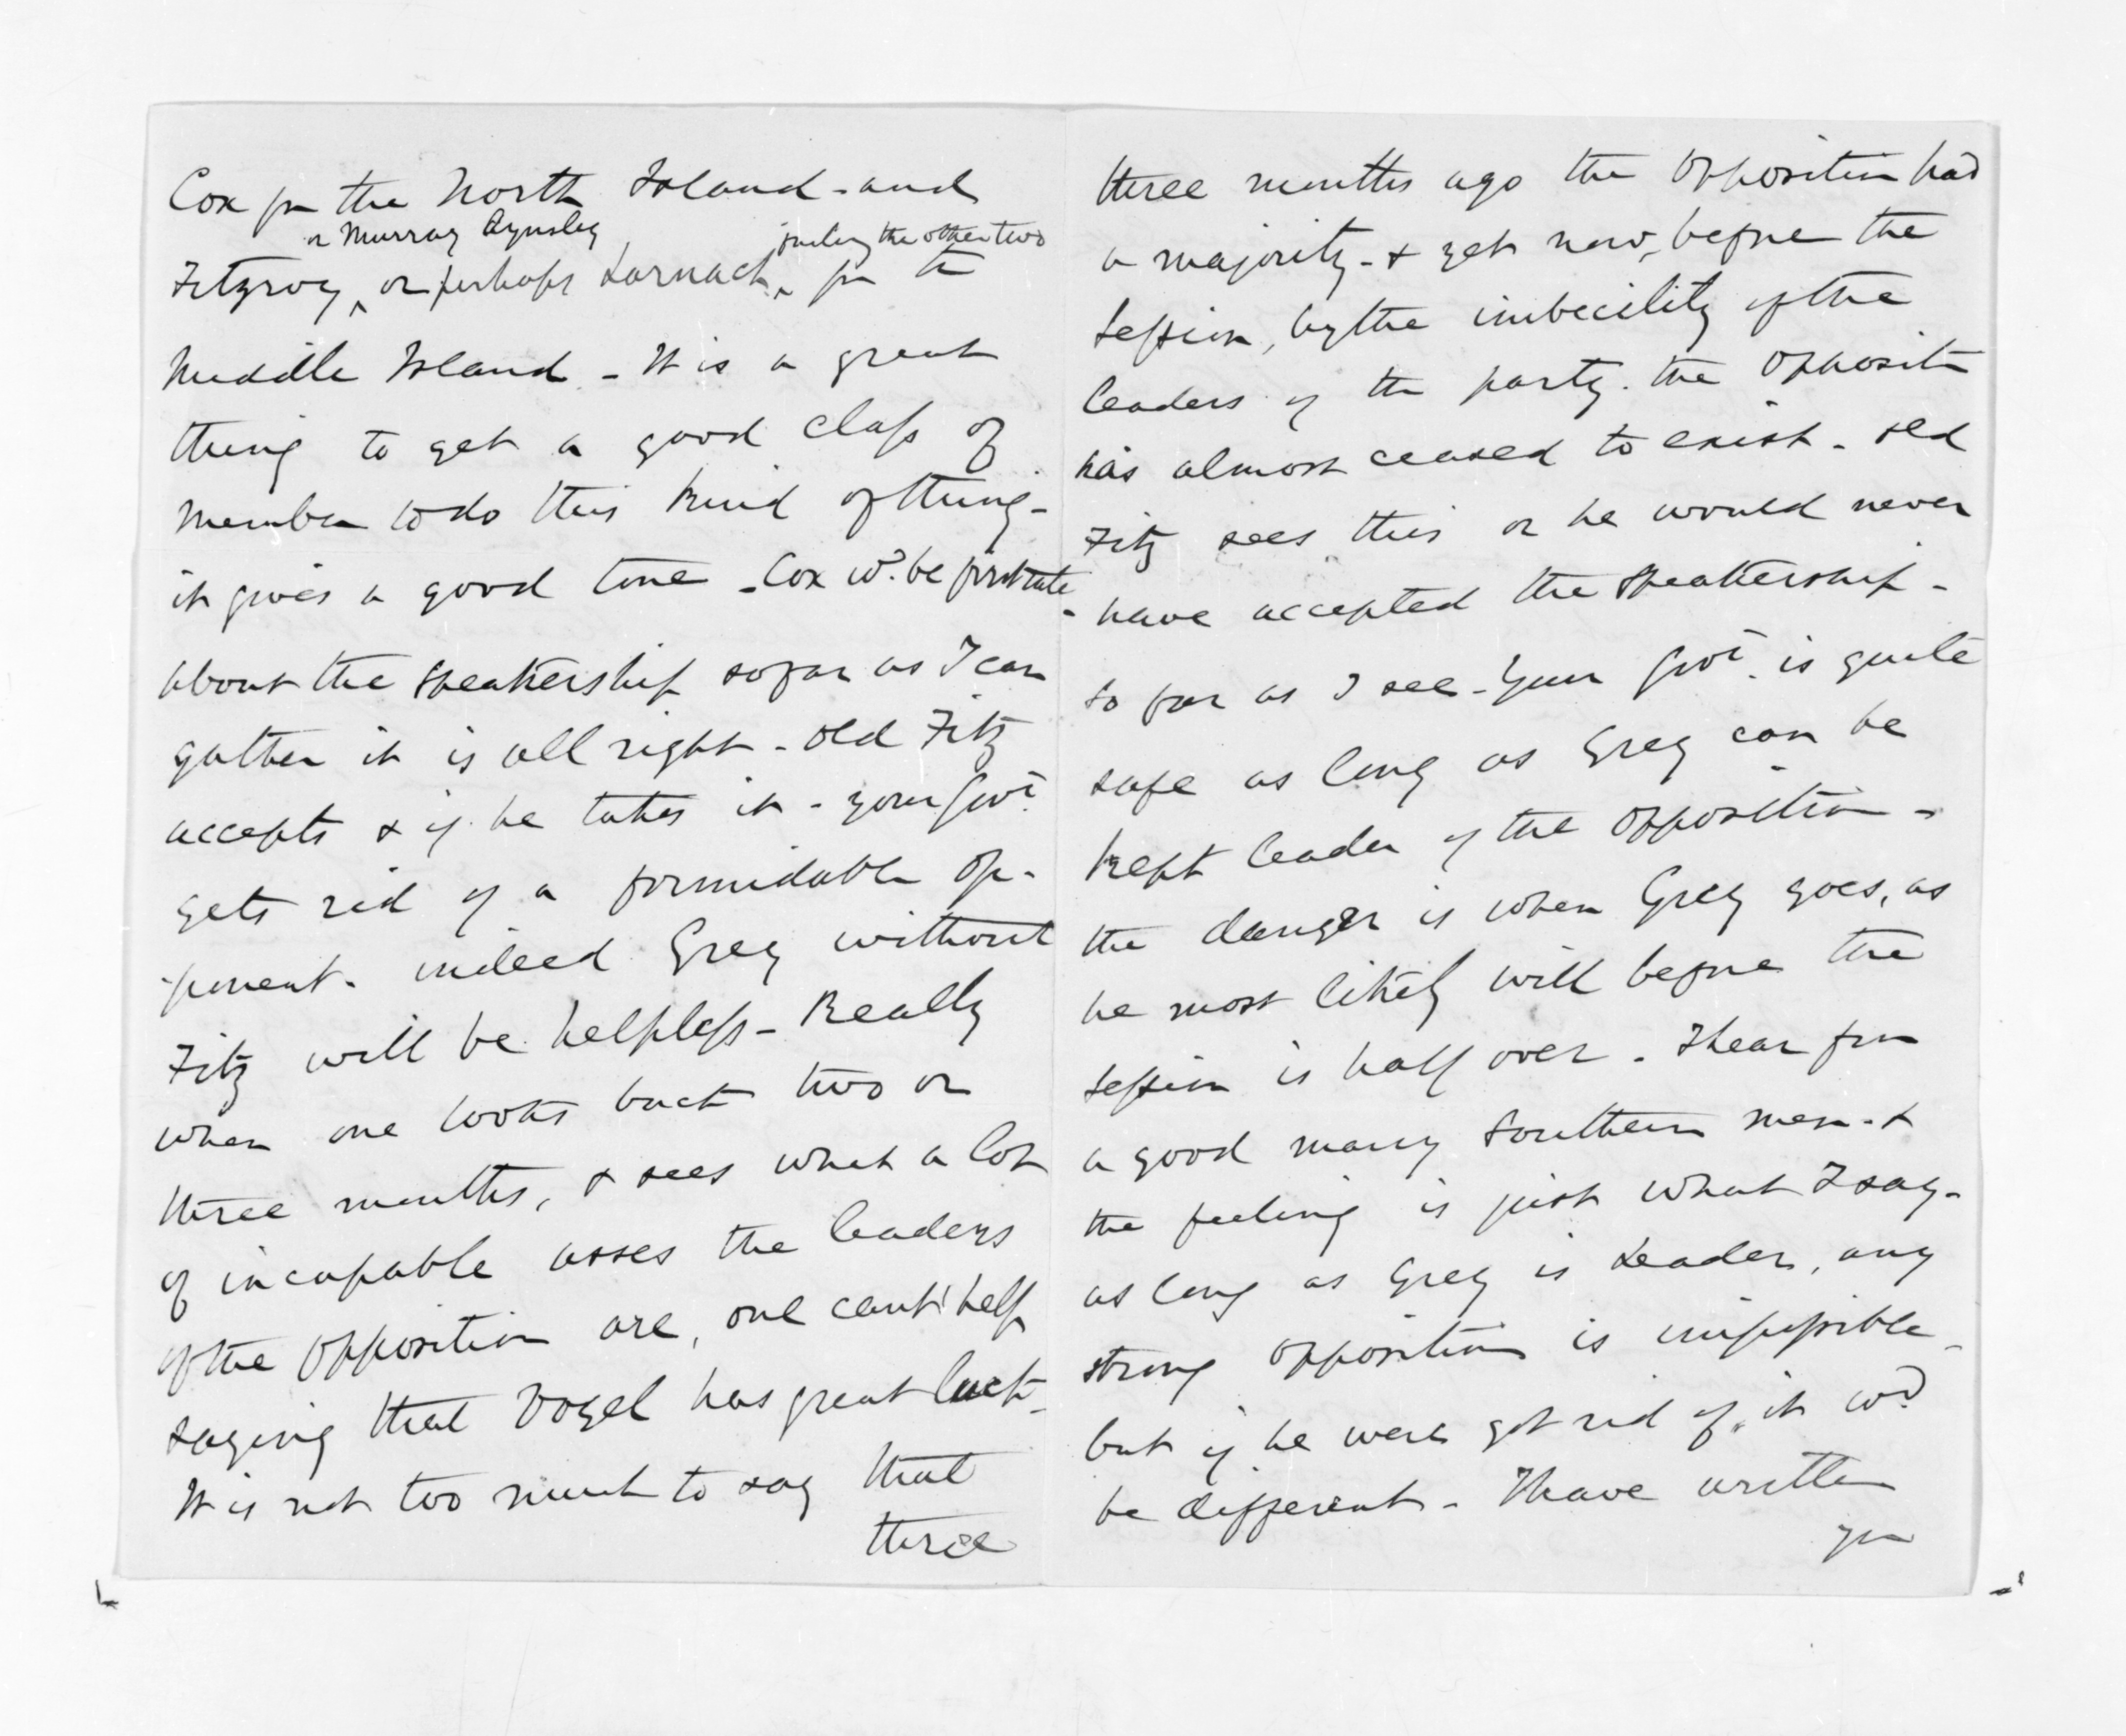 Cox for the North Island - and
or Murray Aynsley failing the other two
Fitzroy, or perhaps Larnach, for the
Middle Island - It is a great
thing to get a good class of
member to do this kind of thing -
it gives a good tone - Cox wd. be first rate -
About the Speakership so far as I can
gather it is all right - Old Fitz
accepts & if he takes it - your Govt.
gets rid of a formidable op-
-ponent. indeed Grey without
Fitz will be helpless - Really
when one looks back two or
three months, & sees what a lot
of incapable asses the leaders
of the Opposition are, one can't help
saying that Vogel has great luck -
It is not too much to say that
three
three months ago the Opposition had
a majority - & yet now, before the
Session, by the imbecility of the
leaders of the party. the Opposition
has almost ceased to exist - Old
Fitz sees this or he would never
have accepted the Speakership -
So far as I see - your Govt. is quite
safe as long as Grey can be
kept leader of the Opposition -
the danger is when Grey goes, as
he most likely will before the
Session is half over - I hear from
a good many Southern men - &
the feeling is just what I say -
as long as Grey is Leader, any
strong opposition is impossible -
but if he were got rid of, it wd.
be different - I have written
you